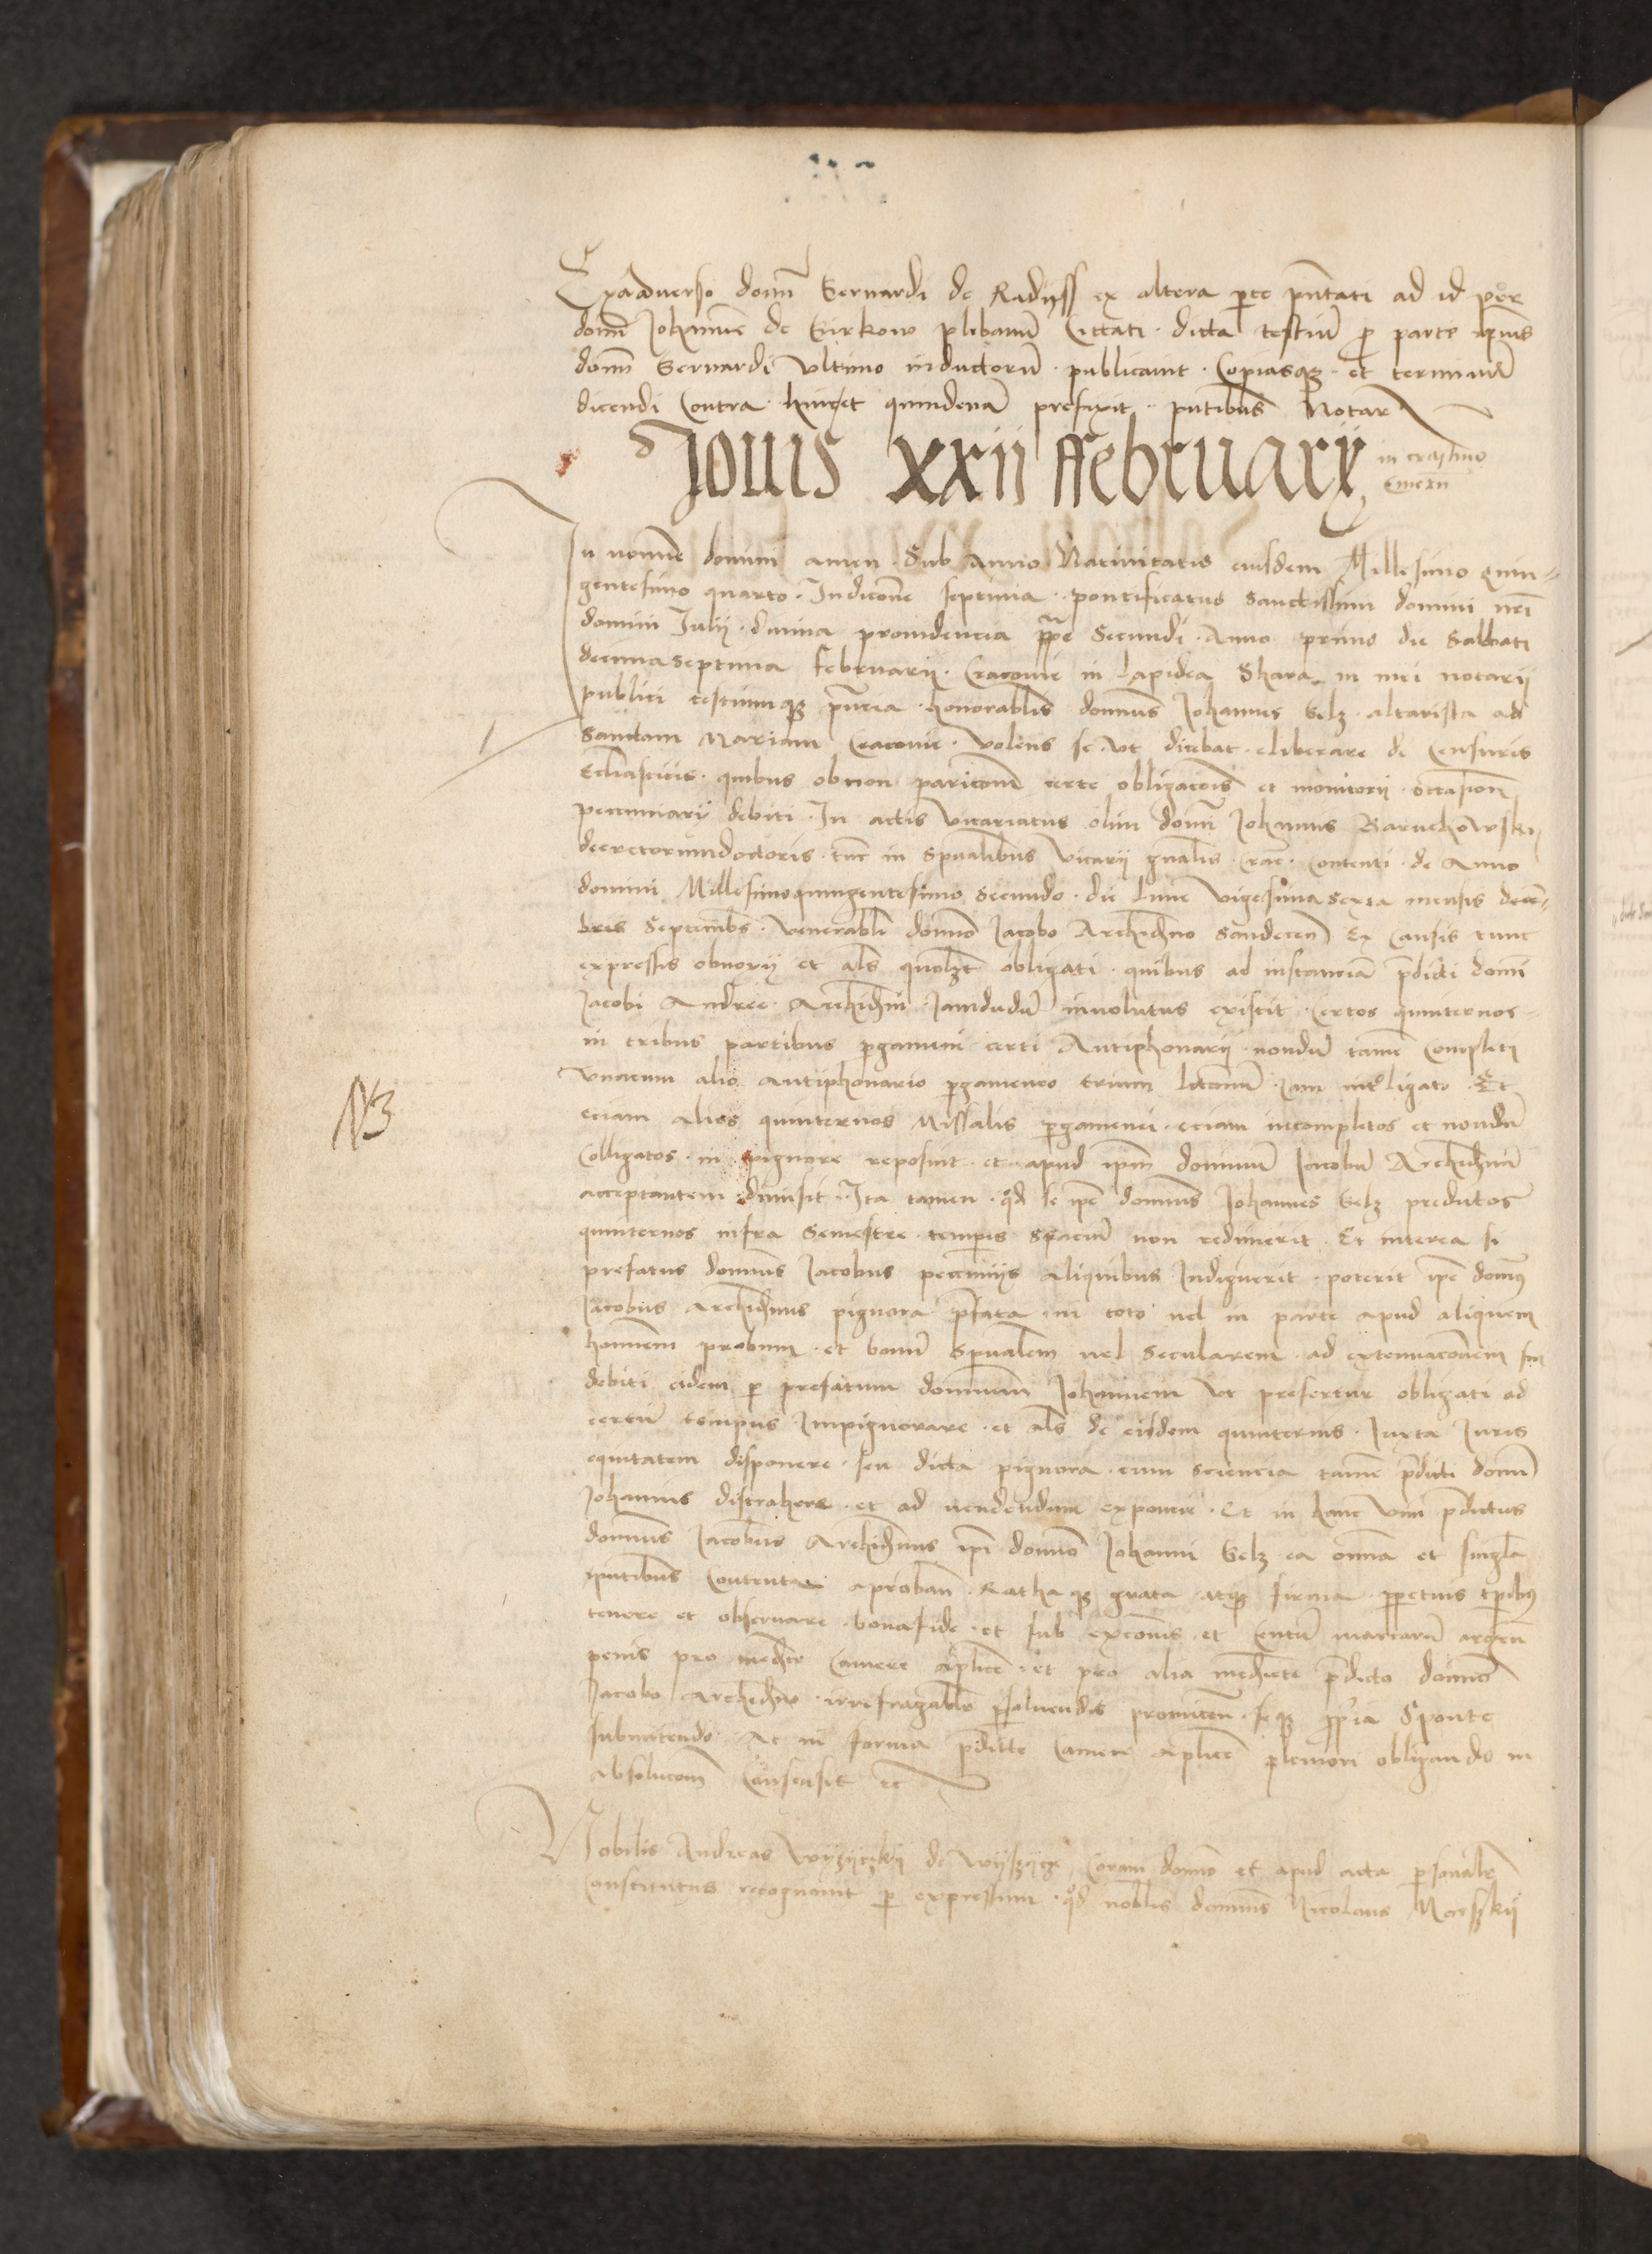 Exaduerso domĩ Bernardi de Radijss ex altera pte pñtati ad id per
domĩ Johannē de Kurkow plebanũ Cittati · dicta testiũ p parte ipius
domĩ Bernardi Vltimo inductorũ · publicauit · Copiasqz · et terminũ
dicendi Contra · huicet quindenā prefixit · pñtibus Notar
Jouis xxij ffebruarij in crastino Cinerũ
In nomine domini amen · Sub Anno Natiuitatis eiusdem Millesimo quin=
gentesimo quarto · Indicõne septima · pontificatus sanctissimi domini nrĩ
domini Julij · diuina prouidencia ppe Secundi · Anno primo die Sabbati
decimaseptima februarij · Cracouie in Lapidea Skara in mei notarij
publici testiumqz pñcia · honorablis domnus Johannes Gelz · altarista ad
Sanctam Mariam Cracouie · Volens se vt dicebat eliberare de Censuris
Eccliasticis · quibus ob non paricionẽ certe obligacõis et monitorij · occasione
pecuniarij debiti · In actis Vicariatus olim domĩ Johannis Baruchowsky
decretorumdoctoris · tũc in spũalibus Vicarij gñalis · Crac · Contenti · de Anno
domini Millesimoquingentesimo secundo · die lune vigesimasexta mensis decẽ=
bris Septembs · Venerabli domno Jacobo Archidñno Sandecen Ex Causis tunc
expressis obnoxij et als quolzt obligati · quibus ad instanciā pdicti domĩ
Jacobi Andree · Archidñi · Jamdudũ inuolutus existit · Certos quinternos=
in tribus partibus pgameni certi Antiphonarij nondũ tamẽ Completi
Vnacum alio antiphonario pgameneo trium · Jam int°ligato Et
eciam alios quinternos Missalis pgamenei · eciam incompletos et nondũ
Colligatos · in pignore reposuit · et apud ipm̃ dominũ Jacobũ Archidñum
acceptantem dimisit · Ita tamen · qd̃ se ipe domnus Johannes Gelz predictos
quinternos infra Semestre · tempis Spaciũ non redimerit · Et interea si
prefatus domnus Jacobus pecunijs aliquibus Indiguerit · poterit ipe domnus
Jacobus Archidñnus pignora pfata in toto uel in parte apud aliquem
hominem probum · et bonũ Spũalem uel Secularem · ad extenuacõnem sui
debiti eidem p prefatum dominum Johannem vt prefertur obligati ad
certũ tempus Impignorare · et als de eisdem quinternis · Juxta Juris
equitatem disponere · seu dicta pignora · cum sciencia tamẽ pdicti domĩ
Johannis distrahere · et ad uendendum exponere · Et in hanc vim pdictus
domnus Jacobus Archidñnus ipi domno Johanni Gelz ea omnia et singla
pñtibus Contenta aproban · Ratha qz grata atqz firma · ppetuis tpibus
tenere et obseruare bonafide · et sub excoĩs · et Centũ marcarũ argen
penis pro medie Camere aplice · et pro alia medietate pdicto domno
Jacobo Archidñno irrefragabli psoluendas promitten · seqz spria Sponte
submitendo · Ac in forma pdicte Camere aplice pleniori obligando in
absolucõm Consensit etc
Nobilis Andreas Wyzyczky de Wyszycze Coram domno et apud acta psonalr
Constitutus recognouit p expressum · qd̃ noblis domnus Nicolaus Marszky
N3